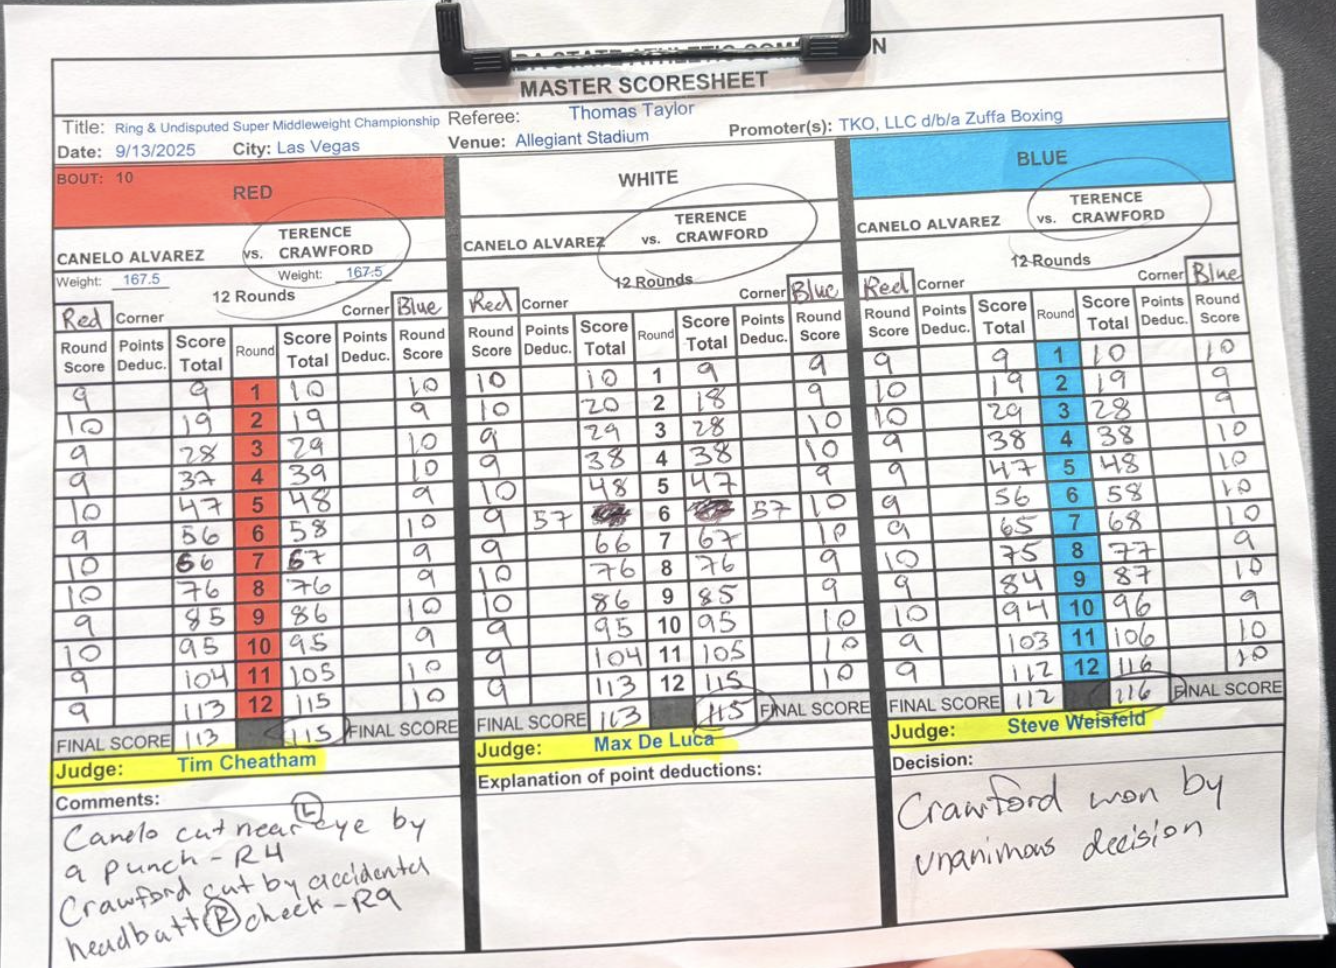 STATE ATHLETIC
MASTER SCORESHEET
Title: Ring & Undisputed Super Middleweight Championship Referee: Thomas Taylor
Date: 9/13/2025 City: Las Vegas Venue: Allegiant Stadium Promoter(s): TKO, LLC d/b/a Zuffa Boxing
BOUT: 10
RED
CANELO ALVAREZ vs. TERENCE CRAWFORD
Weight: 167.5 Weight: 167.5
12 Rounds
Red Corner Corner Blue
Round Score Points Deduc. Score Total Round Score Total Points Deduc. Round Score
9 9 1 10 10
10 19 2 19 9
9 28 3 29 10
9 37 4 39 10
10 47 5 48 9
9 56 6 58 10
10 66 7 67 9
10 76 8 76 9
9 85 9 86 10
10 95 10 95 9
9 104 11 105 10
9 113 12 115 10
FINAL SCORE 113 115 FINAL SCORE
Judge: Tim Cheatham
Comments:
Canelo cut near L eye by
a punch - R4
Crawford cut by accidental
headbutt R cheek - R9
WHITE
CANELO ALVAREZ vs. TERENCE CRAWFORD
12 Rounds
Red Corner Corner Blue
Round Score Points Deduc. Score Total Round Score Total Points Deduc. Round Score
10 10 1 9 9
10 20 2 18 9
9 29 3 28 10
9 38 4 38 10
10 48 5 47 9
9 57 6 57 10
9 66 7 67 10
10 76 8 76 9
10 86 9 85 9
9 95 10 95 10
9 104 11 105 10
9 113 12 115 10
FINAL SCORE 113 115 FINAL SCORE
Judge: Max De Luca
Explanation of point deductions:
BLUE
CANELO ALVAREZ vs. TERENCE CRAWFORD
12 Rounds
Red Corner Corner Blue
Round Score Points Deduc. Score Total Round Score Total Points Deduc. Round Score
9 9 1 10 10
10 19 2 19 9
10 29 3 28 9
9 38 4 38 10
9 47 5 48 10
9 56 6 58 10
9 65 7 68 10
10 75 8 77 9
9 84 9 87 10
10 94 10 96 9
9 103 11 106 10
9 112 12 116 10
FINAL SCORE 112 116 FINAL SCORE
Judge: Steve Weisfeld
Decision:
Crawford won by
unanimous decision